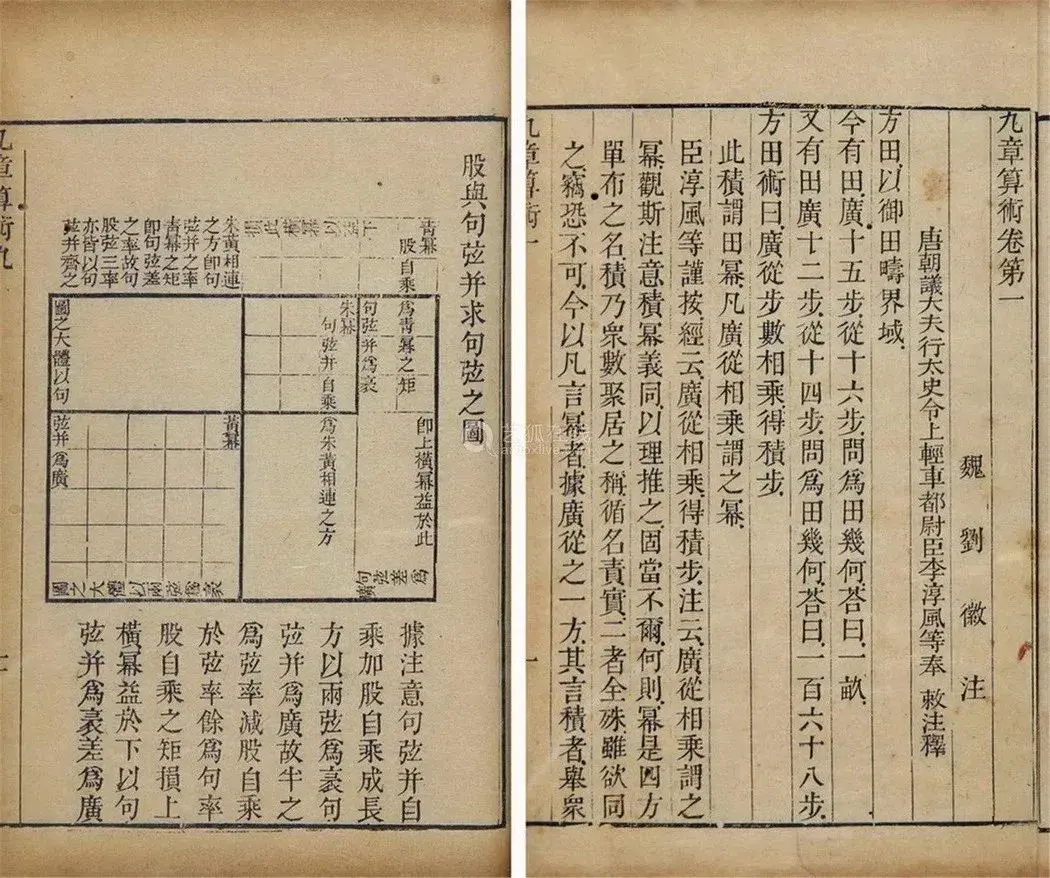 九章算術卷第一
魏劉徽注
唐朝議大夫行太史令上輕車都尉臣李淳風等奉敕注釋
方田、以御田疇界域、
今有田、廣十五步、從十六步、問爲田幾何、荅曰、一畝、
又有田、廣十二步、從十四步、問爲田幾何、荅曰、一百六十八步、
方田術曰、廣從步數相乘得積步、
此積謂田冪、凡廣從相乘謂之冪、
臣淳風等謹按、經云、廣從相乘得積步、注云、廣從相乘謂之
冪、觀斯注意、積冪義同、以理推之、固當不爾、何則、冪是四方
單布之名、積乃衆數聚居之稱、循名責實、二者全殊、雖欲同
之、竊恐不可、今以凡言冪者、據廣從之一方、其言積者、舉衆
九章算術一
一
股與句弦并求句弦之圖
青冪
股自乘爲青冪之矩
即上橫冪益於此
句弦差爲廣
句弦并爲袤
朱冪
句弦并自乘爲朱黃相連之方
朱黃相連
之方即句
弦并之率
青冪之矩
即句弦差
之率故句
股弦三率
亦皆以句
弦并齊之
黃冪
圖之大體以句
弦并爲廣
圖之大體以兩弦爲袤
據注意句弦并自
乘加股自乘成長
方以兩弦爲袤句
弦并爲廣故半之
爲弦率減股自乘
於弦率餘爲句率
股自乘之矩損上
橫冪益於下以句
弦并爲袤差爲廣
九章算術九